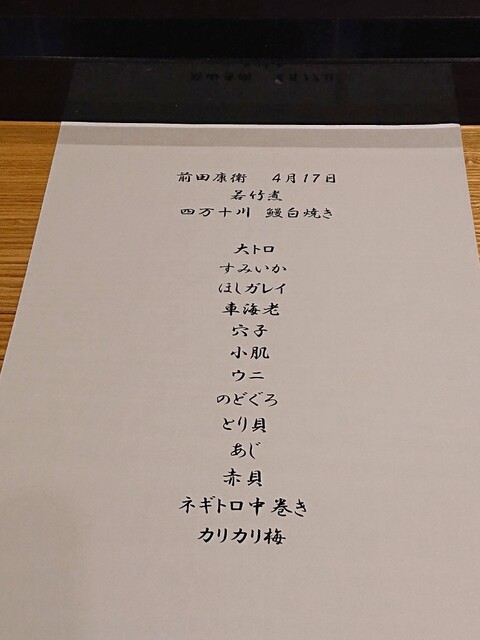 前田康衛 4月17日
若竹煮
四万十川 鰻白焼き
大トロ
すみいか
ほしガレイ
車海老
穴子
小肌
ウニ
のどぐろ
とり貝
あじ
赤貝
ネギトロ中巻き
カリカリ梅